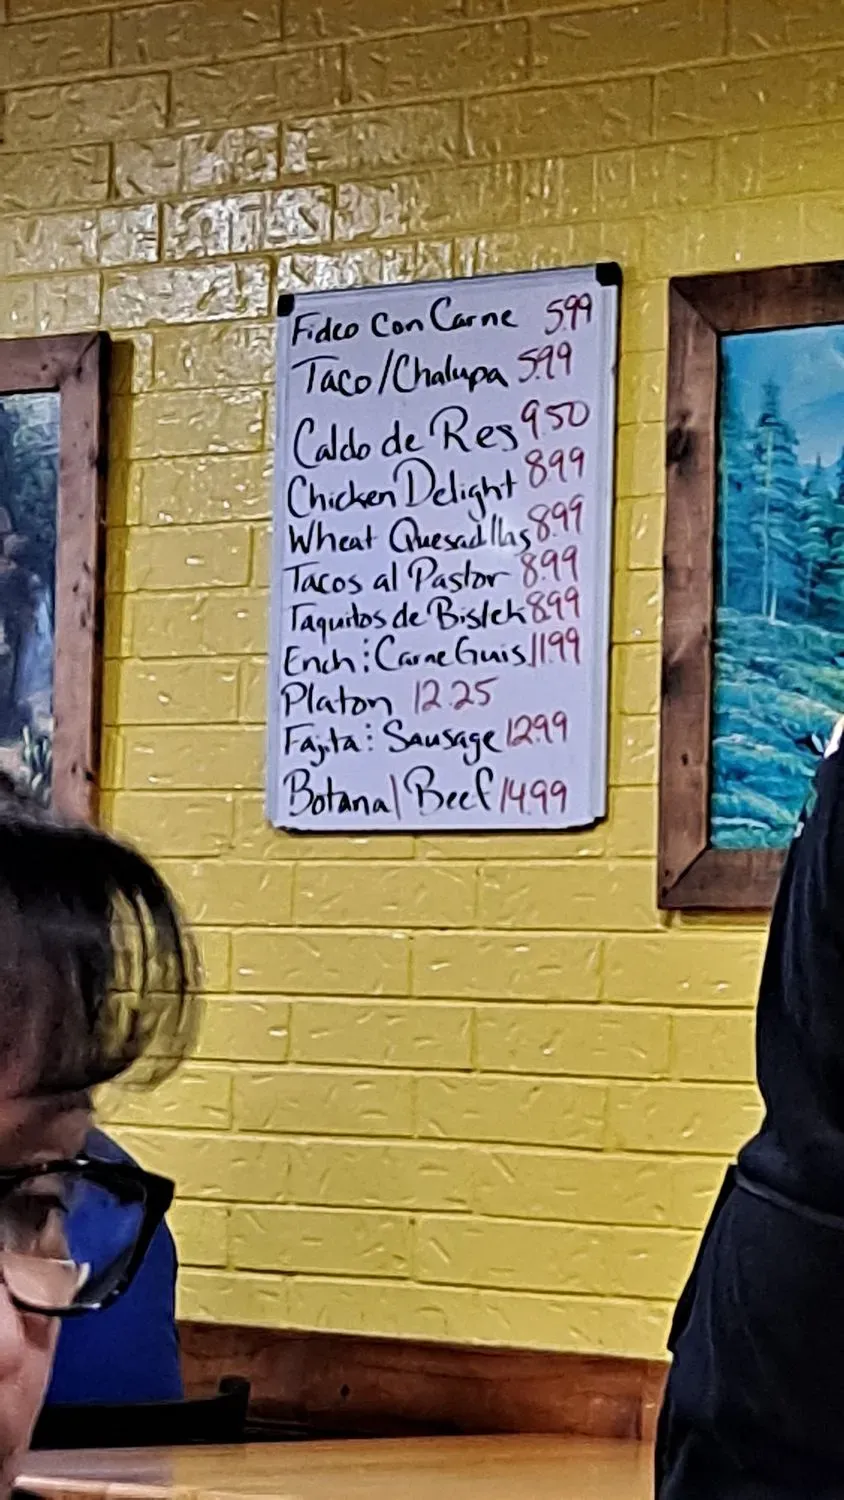 Fideo Con Carne 5.99
Taco/Chalupa 5.99
Caldo de Res 9.50
Chicken Delight 8.99
Wheat Quesadillas 8.99
Tacos al Pastor 8.99
Taquitos de Bistek 8.99
Ench: Carne Guis 11.99
Platon 12.25
Fajita: Sausage 12.99
Botana/Beef 14.99